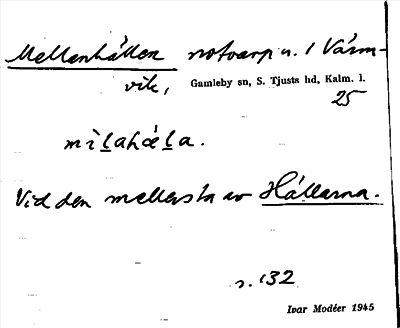 Mellanhällen notvarp n. i Värm-
vik, Gamleby sn, S. Tjusts hd, Kalm. l.
25
mìlahæ̀la.
Vid den mellersta av Hällarna.
s. 132
Ivar Modéer 1945